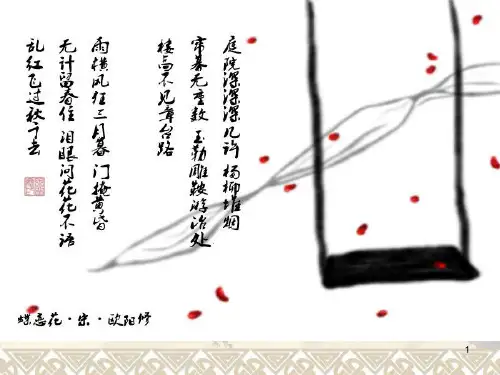 庭院深深深几许 杨柳堆烟
帘幕无重数 玉勒雕鞍游冶处
楼高不见章台路
雨横风狂三月暮 门掩黄昏
无计留春住 泪眼问花花不语
乱红飞过秋千去
蝶恋花·宋·欧阳修
1